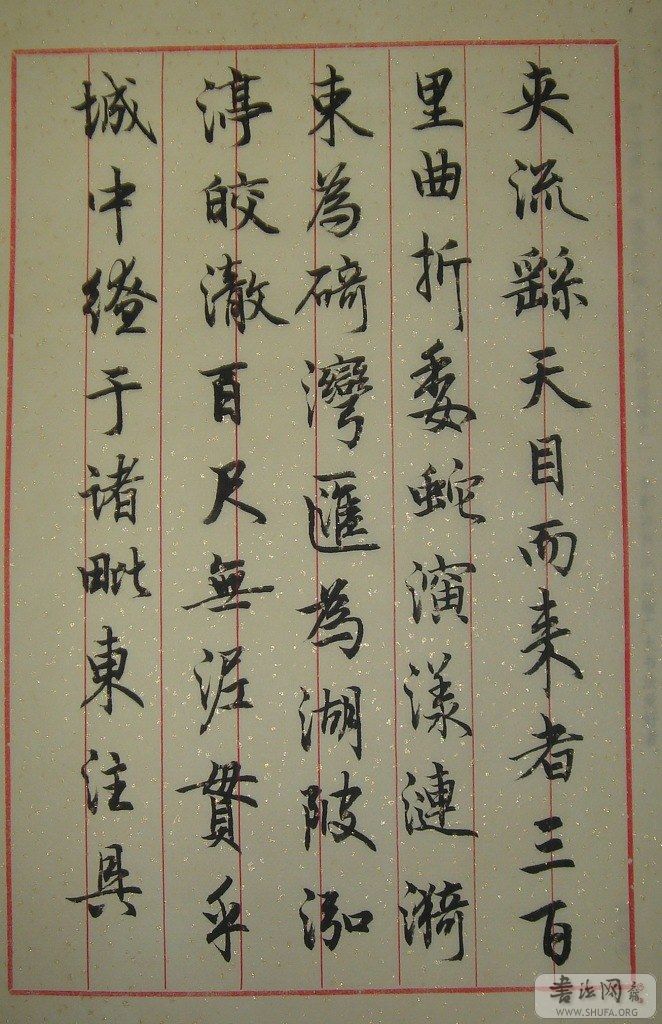 夾流繇天目而来者三百
里曲折委蛇演漾漣漪
束為碕灣匯為湖陂泓
渟皎澈百尺無涯貫乎
城中繚于诸毗東注具
書法网
WWW.SHUFA.ORG